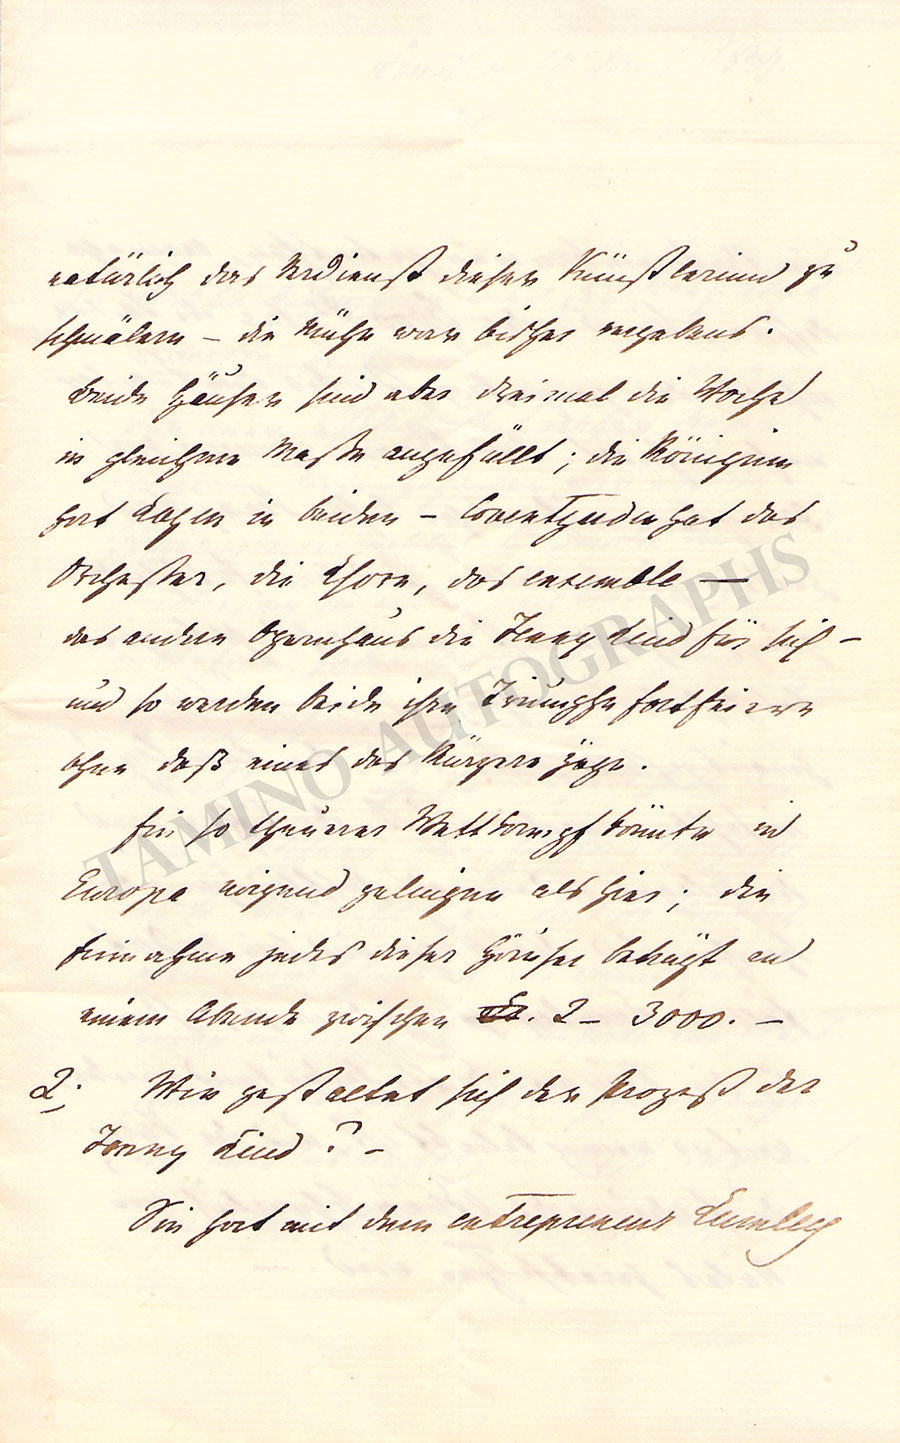 natürlich das Verdienst dieser Künstlerinn zu
schmälern – die Mühe war bisher vergebens.
Beide Häuser sind aber dreimal die Woche
in gleichem Maße angefüllt; die Königinn
hat Logen in beiden – Coventgarden hat das
Orchester, die Chöre, das ensemble —
das andere Opernhaus die Jenny Lind für sich –
und so werden beide ihre Triumphe fortfeiern
ohne daß eines das Kürzere zöge.
Ein so theurer Wettkampf könnte in
Europa nirgend gelingen als hier; die
Einnahme jedes dieser Häuser beträgt an
einem Abende zwischen 2 – 3000. –
2; Wie gestaltet sich der Prozeß der
Jenny Lind? –
Sie hat mit dem entrepreneur Lumley
TAMINO AUTOGRAPHS